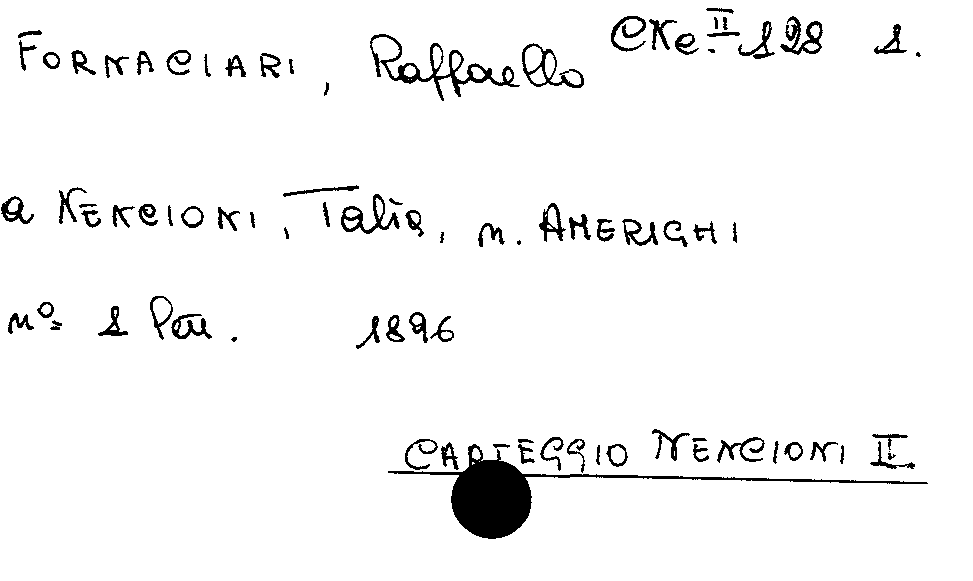 FORNACIARI, Raffaello CNe. II 128 1.
a NENCIONI, Talia, n. AMERIGHI
nº 1 Lett. 1896
CARTEGGIO NENCIONI II